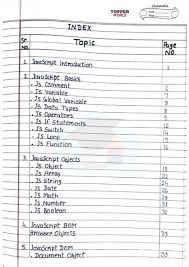 TOPPER
WORLD
INDEX
Sr. No. Topic Page No.
1. JavaScript Introduction 1
2. JavaScript Basics
• Js Comment 6
• Js Variable 7
• Js Global Variable
• Js Data Types
• Js Operators
• Js If Statements
• Js Switch 14
• Js Loop
• Js Function
3. JavaScript Objects
• Js Object
• Js Array
• Js String 24
• Js Date
• Js Math
• Js Number 31
• Js Boolean 32
4. JavaScript BOM
Browser Objects 33
5. JavaScript DOM
• Document Object